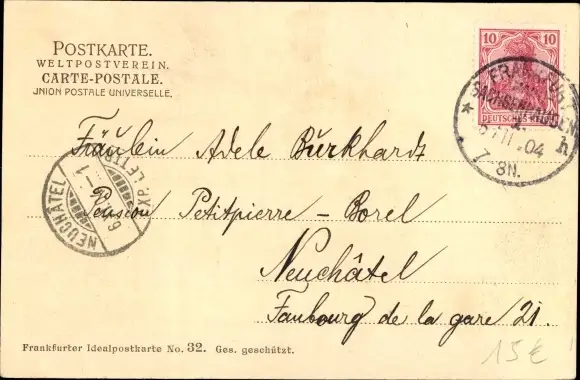 POSTKARTE.
WELTPOSTVEREIN.
CARTE-POSTALE.
UNION POSTALE UNIVERSELLE.
10 10
DEUTSCHES
FRANKFURT
SACHSENHAUSEN
04
7-8N.
Fräulein Adele Burkhardt
NEUCHÂTEL
EXP. LETTR.
Pension Petitpierre - Borel
Neuchâtel
Faubourg de la gare 21.
Frankfurter Idealpostkarte No. 32. Ges. geschützt.
15€